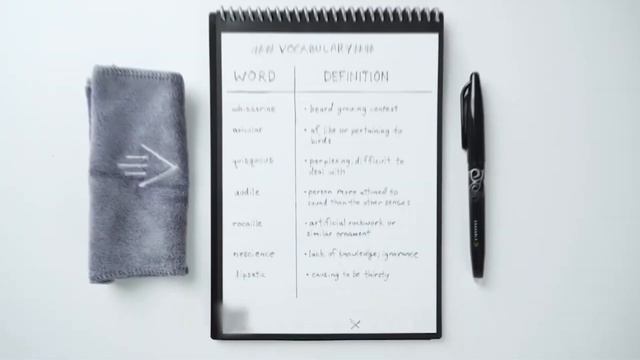 VOCABULARY
WORD DEFINITION
• beard growing contest
avicular • of, like or pertaining to
birds
• perplexing; difficult to
deal with
audile • person more attuned to
sound than the other senses
rocaille • artificial rockwork or
similar ornament
nescience • lack of knowledge; ignorance
dipsetic • causing to be thirsty